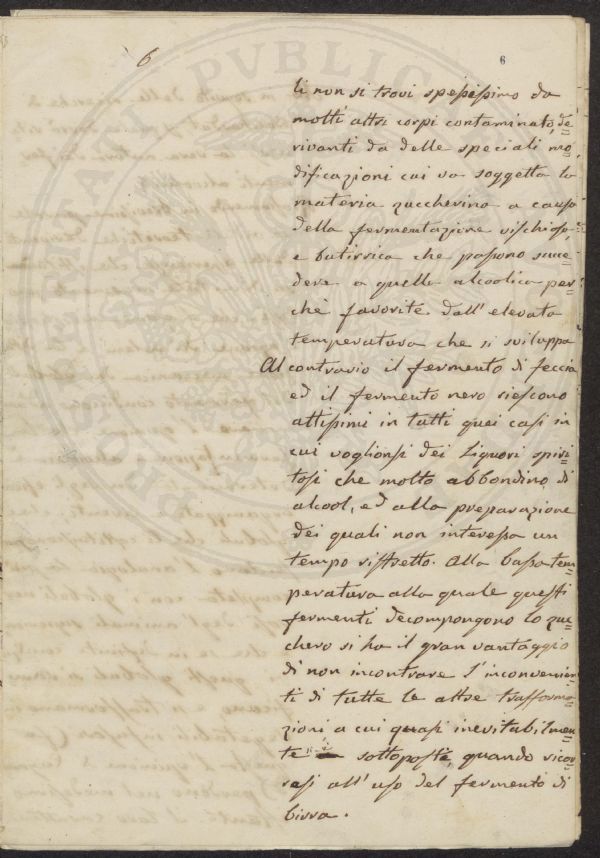 6
6
li non si trovi spessissimo da
molti altri corpi contaminato, de=
rivanti da delle speciali mo=
dificazioni cui va soggetta la
materia zuccherina a causa
della fermentazione vischiosa,
e butirrica che possono succe=
dere a quella alcoolica per=
chè favorite dall' elevata
temperatura che si sviluppa
Al contrario il fermento di feccia
ed il fermento nero riescono
attissimi in tutti quei casi in
cui voglionsi dei Liquori spiri=
tosi che molto abbondino di
alcool, ed alla preparazione
dei quali non interessa un
tempo ristretto. Alla bassa tem=
peratura alla quale questi
fermenti decompongono lo zuc=
chero si ha il gran vantaggio
di non incontrare l'inconvenien=
ti di tutte le altre trasforma=
zioni a cui quasi inevitabilmen=
te sottoposte, quando ricor=
resi all' uso del fermento di
birra.